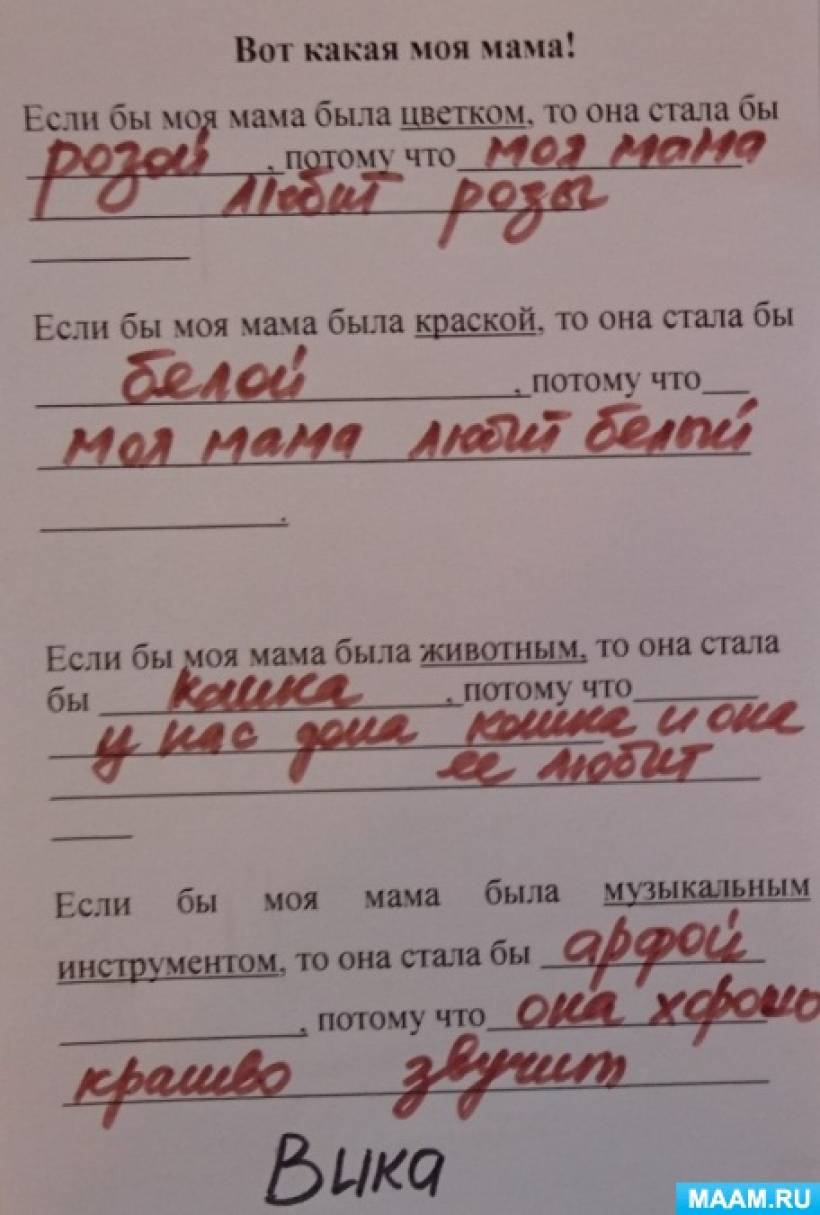 Вот какая моя мама!
Если бы моя мама была цветком, то она стала бы
розой, потому что моя мама
любит розы
Если бы моя мама была краской, то она стала бы
белой, потому что
моя мама любит белый
.
Если бы моя мама была животным, то она стала
бы кошка, потому что
у нас дома кошка и она
ее любит
Если бы моя мама была музыкальным
инструментом, то она стала бы арфой
, потому что она хорошо
красиво звучит
Вика
MAAM.RU